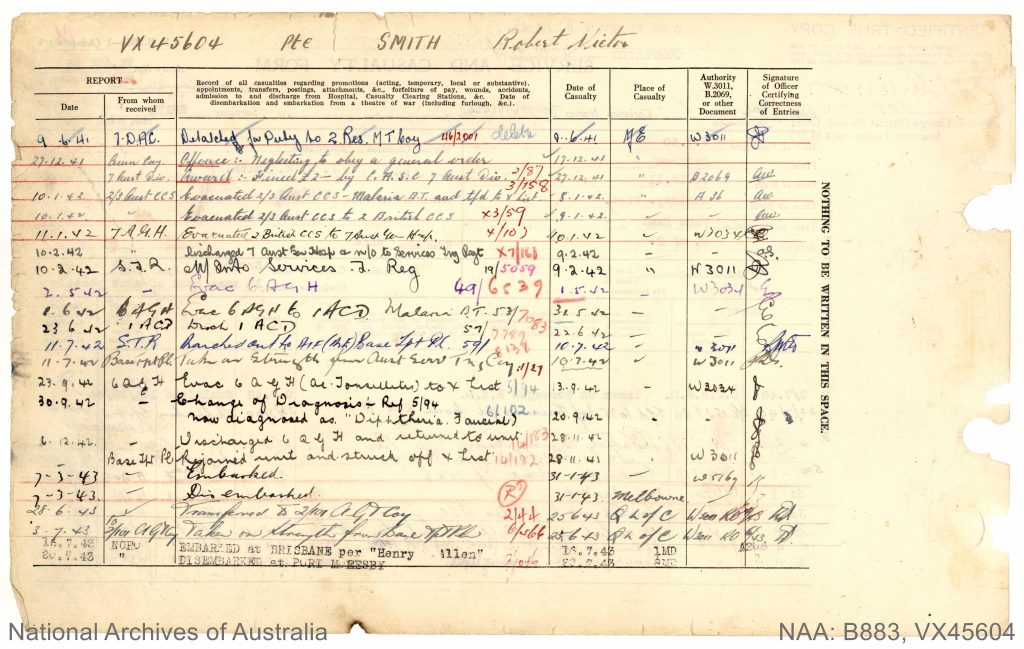 VX45604 Pte SMITH Robert Victor
REPORT
Date
From whom received
Record of all casualties regarding promotions (acting, temporary, local or substantive), appointments, transfers, postings, attachments, &c., forfeiture of pay, wounds, accidents, admission to and discharge from Hospital, Casualty Clearing Stations, &c. Date of disembarkation and embarkation from a theatre of war (including furlough, &c.).
Date of Casualty
Place of Casualty
Authority W.3011, B.2069, or other Document
Signature of Officer Certifying Correctness of Entries
9.6.41 7.D.A.C. Detailed for Duty to 2 Res. M T Coy 46/2001 8.6.41 ME W3011
27.12.41 Offence:- Neglecting to obey a general order 17.12.41 "
7 Aust Div. Award:- Fined £2- by 7 Aust Div. 3/87 27.12.41 " B2069
3/758
10.1.42 2/3 Aust CCS Evacuated 2/3 Aust CCS - Malaria B.T. and tfd to x list 8.1.42 " A36
10.1.42 " Evacuated 2/3 Aust CCS to 2 British CCS x3/59 9.1.42
11.1.42 7 A.G.H. Evacuated 2 British CCS to 7 Aust Gen Hosp. 4/103 10.1.42 W3034
10.2.42 " Discharged 7 Aust Gen Hosp to Services Trg Regt x7/161 9.2.42
10.2.42 S.T.R. M/ into Services T. Reg 19/5059 9.2.42 " W3011
2.5.42 Evac 6 AGH 49/6539 1.5.42 W3034
1.6.42 6 AGH Evac 6 AGH to 1 ACD Malaria B.T. 53/7083 31.5.42
23.6.42 1 ACD Disch 1 ACD 57/7799 22.6.42
11.7.42 S.T.R Marched out to AIF (ME) Base Tpt Pl. 59/8138 10.7.42 W3011
11.7.42 Base Tpt Pl. Taken on Strength from Aust Serv Trg Coy 1/27 10.7.42 W3011
23.9.42 6 AGH Evac 6 A G H (Ac. Tonsillitis) to x List 5/94 13.9.42 W3034
30.9.42 Change of Diagnosis:- Ref 5/94
now diagnosed as "Diphtheria Faucial) 6/102 20.9.42
6.12.42 Discharged 6 A G H and returned to unit 14/183 28.11.42
Base Tpt Pl. Rejoined unit and struck off x List 14/182 28.11.41 W3011
7-3-43 Embarked. 31-1-43
7-3-43. Disembarked. 31-1-43. Melbourne
28.6.43 Transferred to 2/101 A G T Coy 2/44 25.6.43 Q L of C
3.7.43 2/101 AGTCoy Taken on Strength from Base Tpt Pl. 6/566 25.6.43 Q L of C
16.7.43 NGPO EMBARKED at BRISBANE per "Henry Allen" 16.7.43 1MD
" DISEMBARKED at PORT MORESBY
NOTHING TO BE WRITTEN IN THIS SPACE.
National Archives of Australia
NAA: B883, VX45604